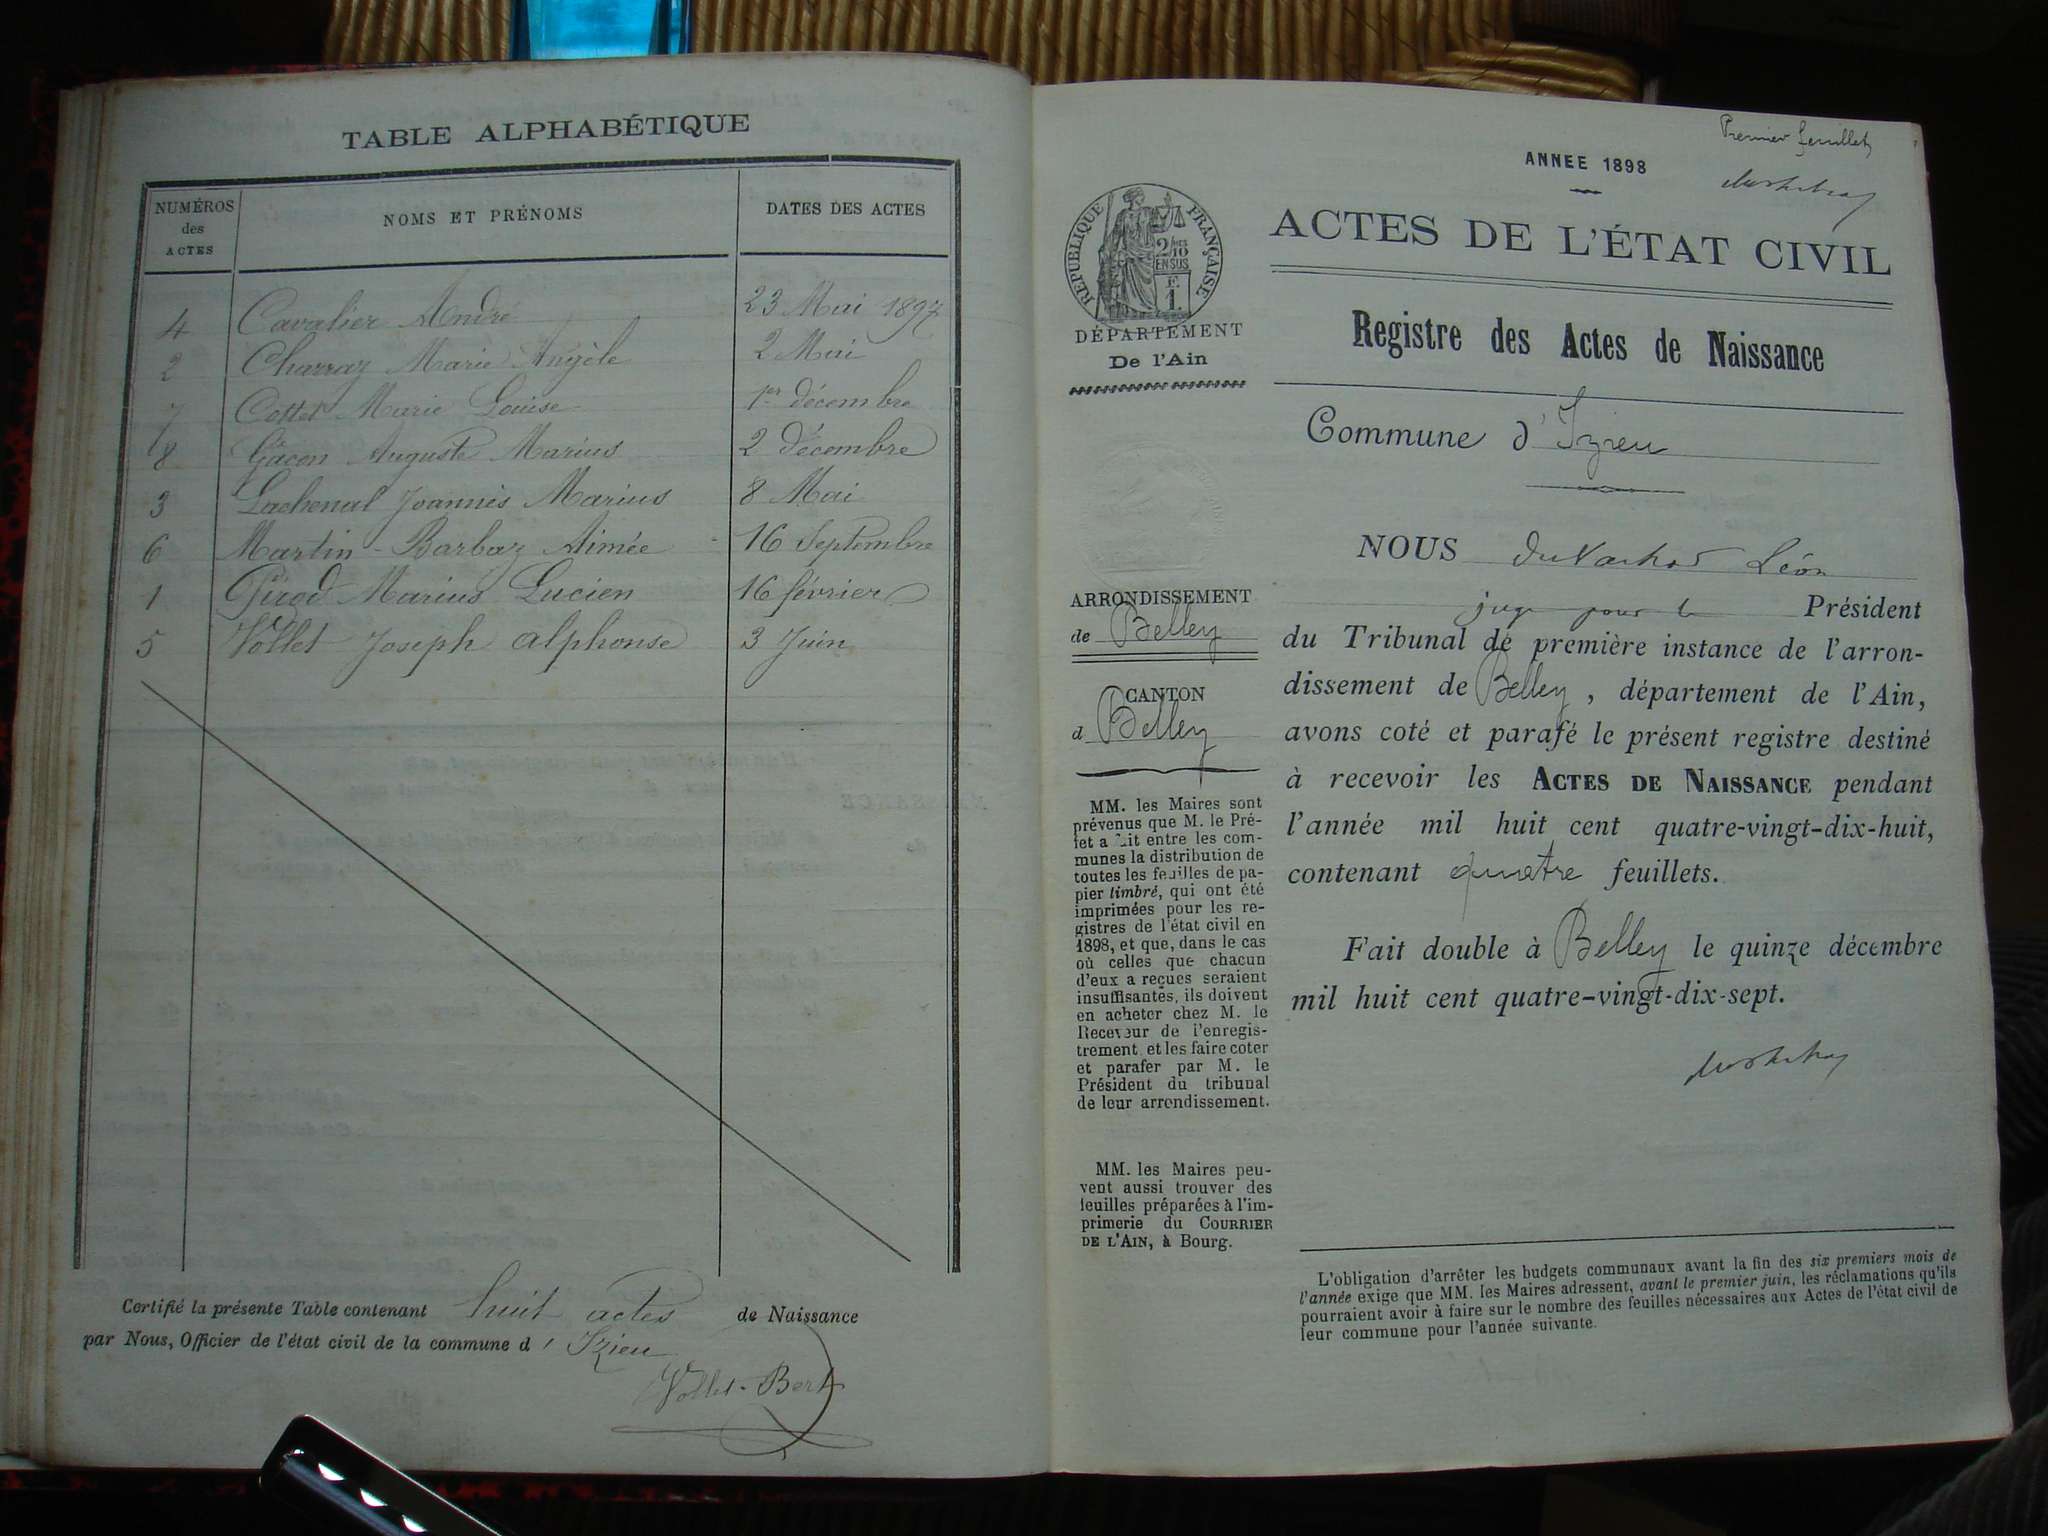 TABLE ALPHABÉTIQUE
NUMÉROS des ACTES
NOMS ET PRÉNOMS
DATES DES ACTES
4 Cavalier André 23 Mai 1897
2 Charraz Marie Angèle 2 Mai
7 Cottet Marie Louise 1er décembre
8 Gacon Auguste Marius 2 décembre
3 Lachenal Joannès Marius 8 Mai
6 Martin-Barbaz Aimée 16 Septembre
1 Pirod Marius Lucien 16 février
5 Vollet Joseph Alphonse 3 Juin
Certifié la présente Table contenant huit actes de Naissance
par Nous, Officier de l'état civil de la commune d' Izieu
Vollet-Bert
Premier feuillet
ANNEE 1898
REPUBLIQUE FRANÇAISE
2/10
EN SUS
1
ACTES DE L'ÉTAT CIVIL
DÉPARTEMENT
De l'Ain
Registre des Actes de Naissance
Commune d'Izieu
ARRONDISSEMENT
de Belley
CANTON
d Belley
MM. les Maires sont
prévenus que M. le Pré-
fet a fait entre les com-
munes la distribution de
toutes les feuilles de pa-
pier timbré, qui ont été
imprimées pour les re-
gistres de l'état civil en
1898, et que, dans le cas
où celles que chacun
d'eux a reçues seraient
insuffisantes, ils doivent
en acheter chez M. le
Receveur de l'enregis-
trement et les faire coter
et parafer par M. le
Président du tribunal
de leur arrondissement.
MM. les Maires peu-
vent aussi trouver des
feuilles préparées à l'im-
primerie du COURRIER
DE L'AIN, à Bourg.
NOUS Léon
juge pour le Président
du Tribunal de première instance de l'arron-
dissement de Belley, département de l'Ain,
avons coté et parafé le présent registre destiné
à recevoir les ACTES DE NAISSANCE pendant
l'année mil huit cent quatre-vingt-dix-huit,
contenant quatre feuillets.
Fait double à Belley le quinze décembre
mil huit cent quatre-vingt-dix-sept.
L'obligation d'arrêter les budgets communaux avant la fin des six premiers mois de
l'année exige que MM. les Maires adressent, avant le premier juin, les réclamations qu'ils
pourraient avoir à faire sur le nombre des feuilles nécessaires aux Actes de l'état civil de
leur commune pour l'année suivante.